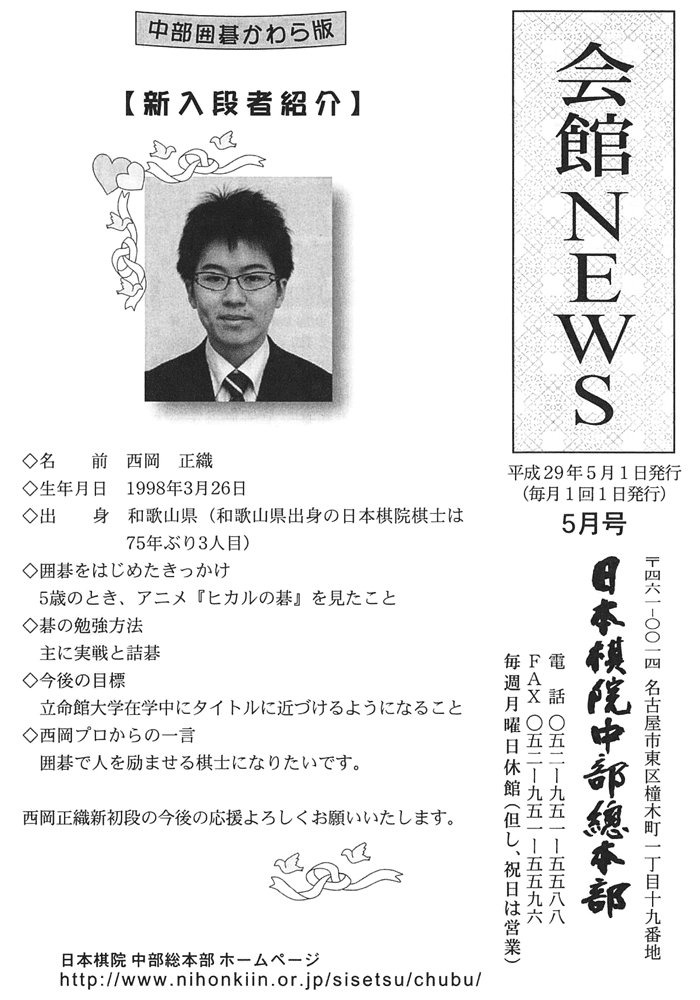 中部囲碁かわら版
【新入段者紹介】
◇名　　前　西岡　正織
◇生年月日　1998年3月26日
◇出　　身　和歌山県（和歌山県出身の日本棋院棋士は
75年ぶり3人目）
◇囲碁をはじめたきっかけ
5歳のとき、アニメ『ヒカルの碁』を見たこと
◇碁の勉強方法
主に実戦と詰碁
◇今後の目標
立命館大学在学中にタイトルに近づけるようになること
◇西岡プロからの一言
囲碁で人を励ませる棋士になりたいです。
西岡正織新初段の今後の応援よろしくお願いいたします。
日本棋院 中部総本部 ホームページ
http://www.nihonkiin.or.jp/sisetsu/chubu/
会館NEWS
平成29年5月1日発行
（毎月1回1日発行）
5月号
〒四六一-〇〇一四 名古屋市東区橦木町一丁目十九番地
日本棋院中部總本部
電　話 〇五二ー九五一ー五五八八
FAX 〇五二ー九五一ー五五九六
毎週月曜日休館（但し、祝日は営業）